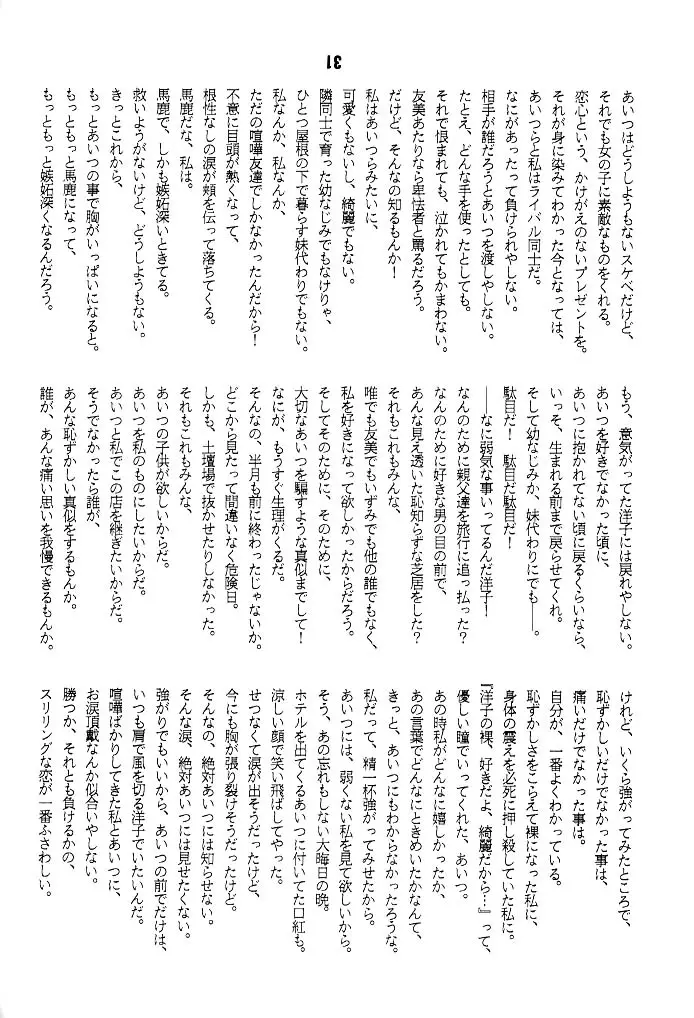 31
あいつはどうしようもないスケベだけど、
それでも女の子に素敵なものをくれる。
恋心という、かけがえのないプレゼントを。
それが身に染みてわかった今となっては、
あいつらと私はライバル同士だ。
なにがあったって負けられやしない。
相手が誰だろうとあいつを渡しやしない。
たとえ、どんな手を使ったとしても。
それで恨まれても、泣かれてもかまわない。
友美あたりなら卑怯者と罵るだろう。
だけど、そんなの知るもんか！
私はあいつらみたいに、
可愛くもないし、綺麗でもない。
隣同士で育った幼なじみでもなけりゃ、
ひとつ屋根の下で暮らす妹代わりでもない。
私なんか、私なんか、
ただの喧嘩友達でしかなかったんだから！
不意に目頭が熱くなって、
根性なしの涙が頬を伝って落ちてくる。
馬鹿だな、私は。
馬鹿で、しかも嫉妬深いときてる。
救いようがないけど、どうしようもない。
きっとこれから、
もっとあいつの事で胸がいっぱいになると。
もっともっと馬鹿になって、
もっともっと嫉妬深くなるんだろう。
もう、意気がってた洋子には戻れやしない。
あいつを好きでなかった頃に、
あいつに抱かれてない頃に戻るくらいなら、
いっそ、生まれる前まで戻らせてくれ。
そして幼なじみか、妹代わりにでも――。
駄目だ！　駄目だ駄目だ！
――なに弱気な事いってるんだ洋子！
なんのために親父達を旅行に追っ払った？
なんのために好きな男の目の前で、
あんな見え透いた恥知らずな芝居をした？
それもこれもみんな、
唯でも友美でもいずみでも他の誰でもなく、
私を好きになって欲しかったからだろう。
そしてそのために、そのために、
大切なあいつを騙すような真似までして！
なにが、もうすぐ生理がくるだ。
そんなの、半月も前に終わったじゃないか。
どこから見たって間違いなく危険日。
しかも、土壇場で抜かせたりしなかった。
それもこれもみんな、
あいつの子供が欲しいからだ。
あいつを私のものにしたいからだ。
あいつと私でこの店を継ぎたいからだ。
そうでなかったら誰が、
あんな恥ずかしい真似をするもんか。
誰が、あんな痛い思いを我慢できるもんか。
けれど、いくら強がってみたところで、
恥ずかしいだけでなかった事は、
痛いだけでなかった事は。
自分が、一番よくわかっている。
恥ずかしさをこらえて裸になった私に、
身体の震えを必死に押し殺していた私に。
『洋子の裸、好きだよ、綺麗だから…』って、
優しい瞳でいってくれた、あいつ。
あの時私がどんなに嬉しかったか、
あの言葉でどんなにときめいたかなんて、
きっと、あいつにもわからなかったろうな。
私だって、精一杯強がってみせたから。
あいつには、弱くない私を見て欲しいから。
そう、あの忘れもしない大晦日の晩。
ホテルを出てくるあいつに付いてた口紅も。
涼しい顔で笑い飛ばしてやった。
せつなくて涙が出そうだったけど、
今にも胸が張り裂けそうだったけど。
そんなの、絶対あいつには知らせない。
そんな涙、絶対あいつには見せたくない。
強がりでもいいから、あいつの前でだけは、
いつも肩で風を切る洋子でいたいんだ。
喧嘩ばかりしてきた私とあいつに、
お涙頂戴なんか似合いやしない。
勝つか、それとも負けるかの、
スリリングな恋が一番ふさわしい。